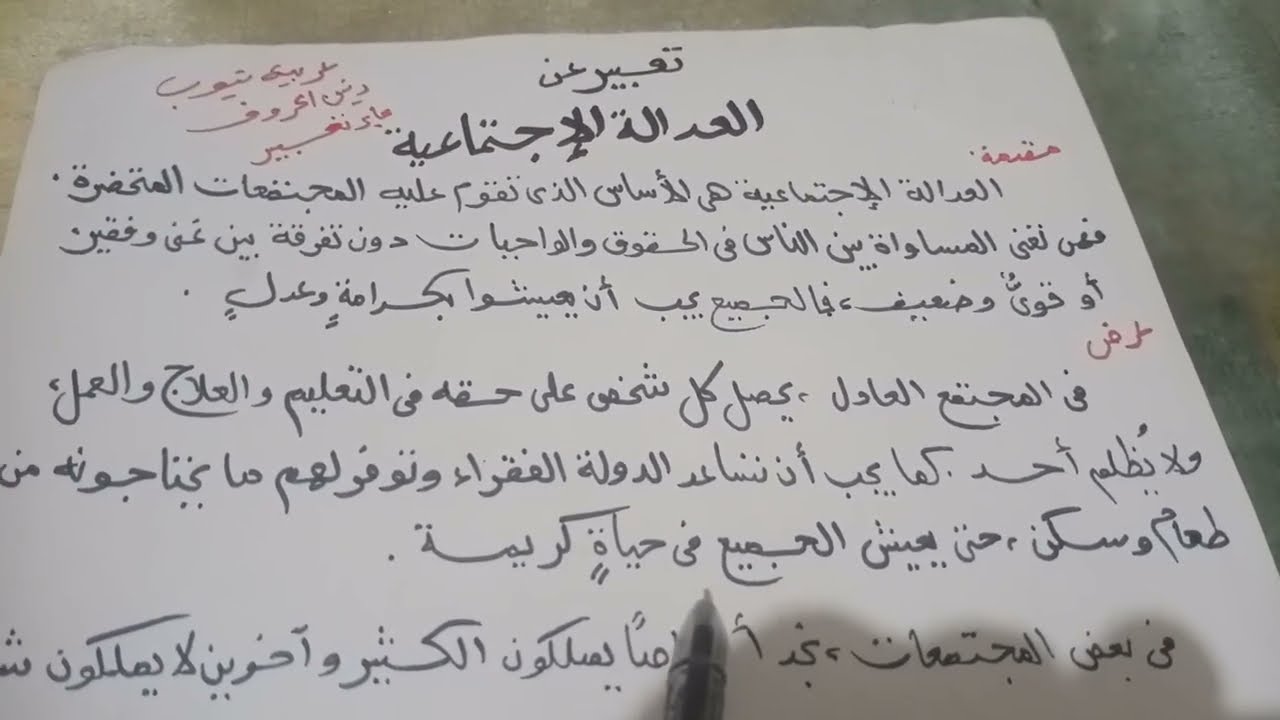 تعبير عن
العدالة الإجتماعية
مقدمة:
العدالة الإجتماعية هى الأساس الذى تقوم عليه المجتمعات المتحضرة.
فهى تعنى المساواة بين الناس فى الحقوق والواجبات دون تفرقة بين غنى وفقير
أو قوىٌّ وضعيف، فالجميع يجب أن يعيشوا بكرامةٍ وعدلٍ.
عرض
فى المجتمع العادل، يحصل كل شخص على حقه فى التعليم والعلاج والعمل،
ولا يُظلم أحد. كما يجب أن تساعد الدولة الفقراء وتوفر لهم ما يحتاجونه من
طعام وسكن، حتى يعيش الجميع فى حياةٍ كريمة.
فى بعض المجتمعات، نجد يملكون الكثير وآخرين لا يملكون